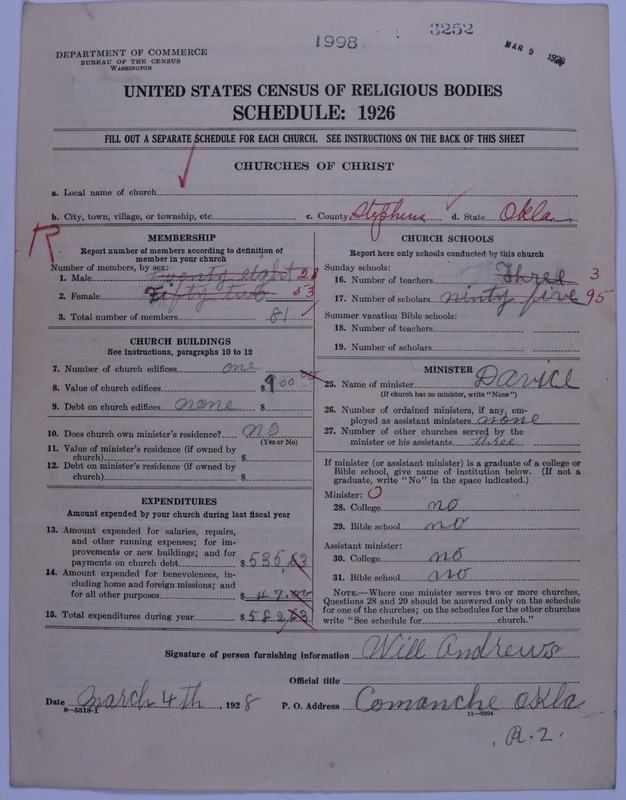 3252
1998
MAR 9
DEPARTMENT OF COMMERCE
BUREAU OF THE CENSUS
WASHINGTON
UNITED STATES CENSUS OF RELIGIOUS BODIES
SCHEDULE: 1926
FILL OUT A SEPARATE SCHEDULE FOR EACH CHURCH. SEE INSTRUCTIONS ON THE BACK OF THIS SHEET
CHURCHES OF CHRIST
a. Local name of church
b. City, town, village, or township, etc. c. County Stephens d. State Okla
R
MEMBERSHIP
Report number of members according to definition of
member in your church
Number of members, by sex:
1. Male twenty eight 28
2. Female Fifty two 53
3. Total number of members 81
CHURCH BUILDINGS
See instructions, paragraphs 10 to 12
7. Number of church edifices one
8. Value of church edifices $900
9. Debt on church edifices none $
10. Does church own minister's residence? no
(Yes or No)
11. Value of minister's residence (if owned by
church) $
12. Debt on minister's residence (if owned by
church) $
EXPENDITURES
Amount expended by your church during last fiscal year
13. Amount expended for salaries, repairs,
and other running expenses; for im-
provements or new buildings; and for
payments on church debt $535.83
14. Amount expended for benevolences, in-
cluding home and foreign missions; and
for all other purposes $47.00
15. Total expenditures during year $582.83
CHURCH SCHOOLS
Report here only schools conducted by this church
Sunday schools:
16. Number of teachers Three 3
17. Number of scholars ninty five 95
Summer vacation Bible schools:
18. Number of teachers
19. Number of scholars
MINISTER
25. Name of minister
(If church has no minister, write "None")
26. Number of ordained ministers, if any, em-
ployed as assistant ministers none
27. Number of other churches served by the
minister or his assistants three
If minister (or assistant minister) is a graduate of a college or
Bible school, give name of institution below. (If not a
graduate, write "No" in the space indicated.)
Minister: O
28. College no
29. Bible school no
Assistant minister:
30. College no
31. Bible school no
NOTE.—Where one minister serves two or more churches,
Questions 28 and 29 should be answered only on the schedule
for one of the churches; on the schedules for the other churches
write "See schedule for church."
Signature of person furnishing information Will Andrews
Official title
Date March 4th, 1928 P. O. Address Comanche Okla
8—5518-1 11—9204
R. 2.